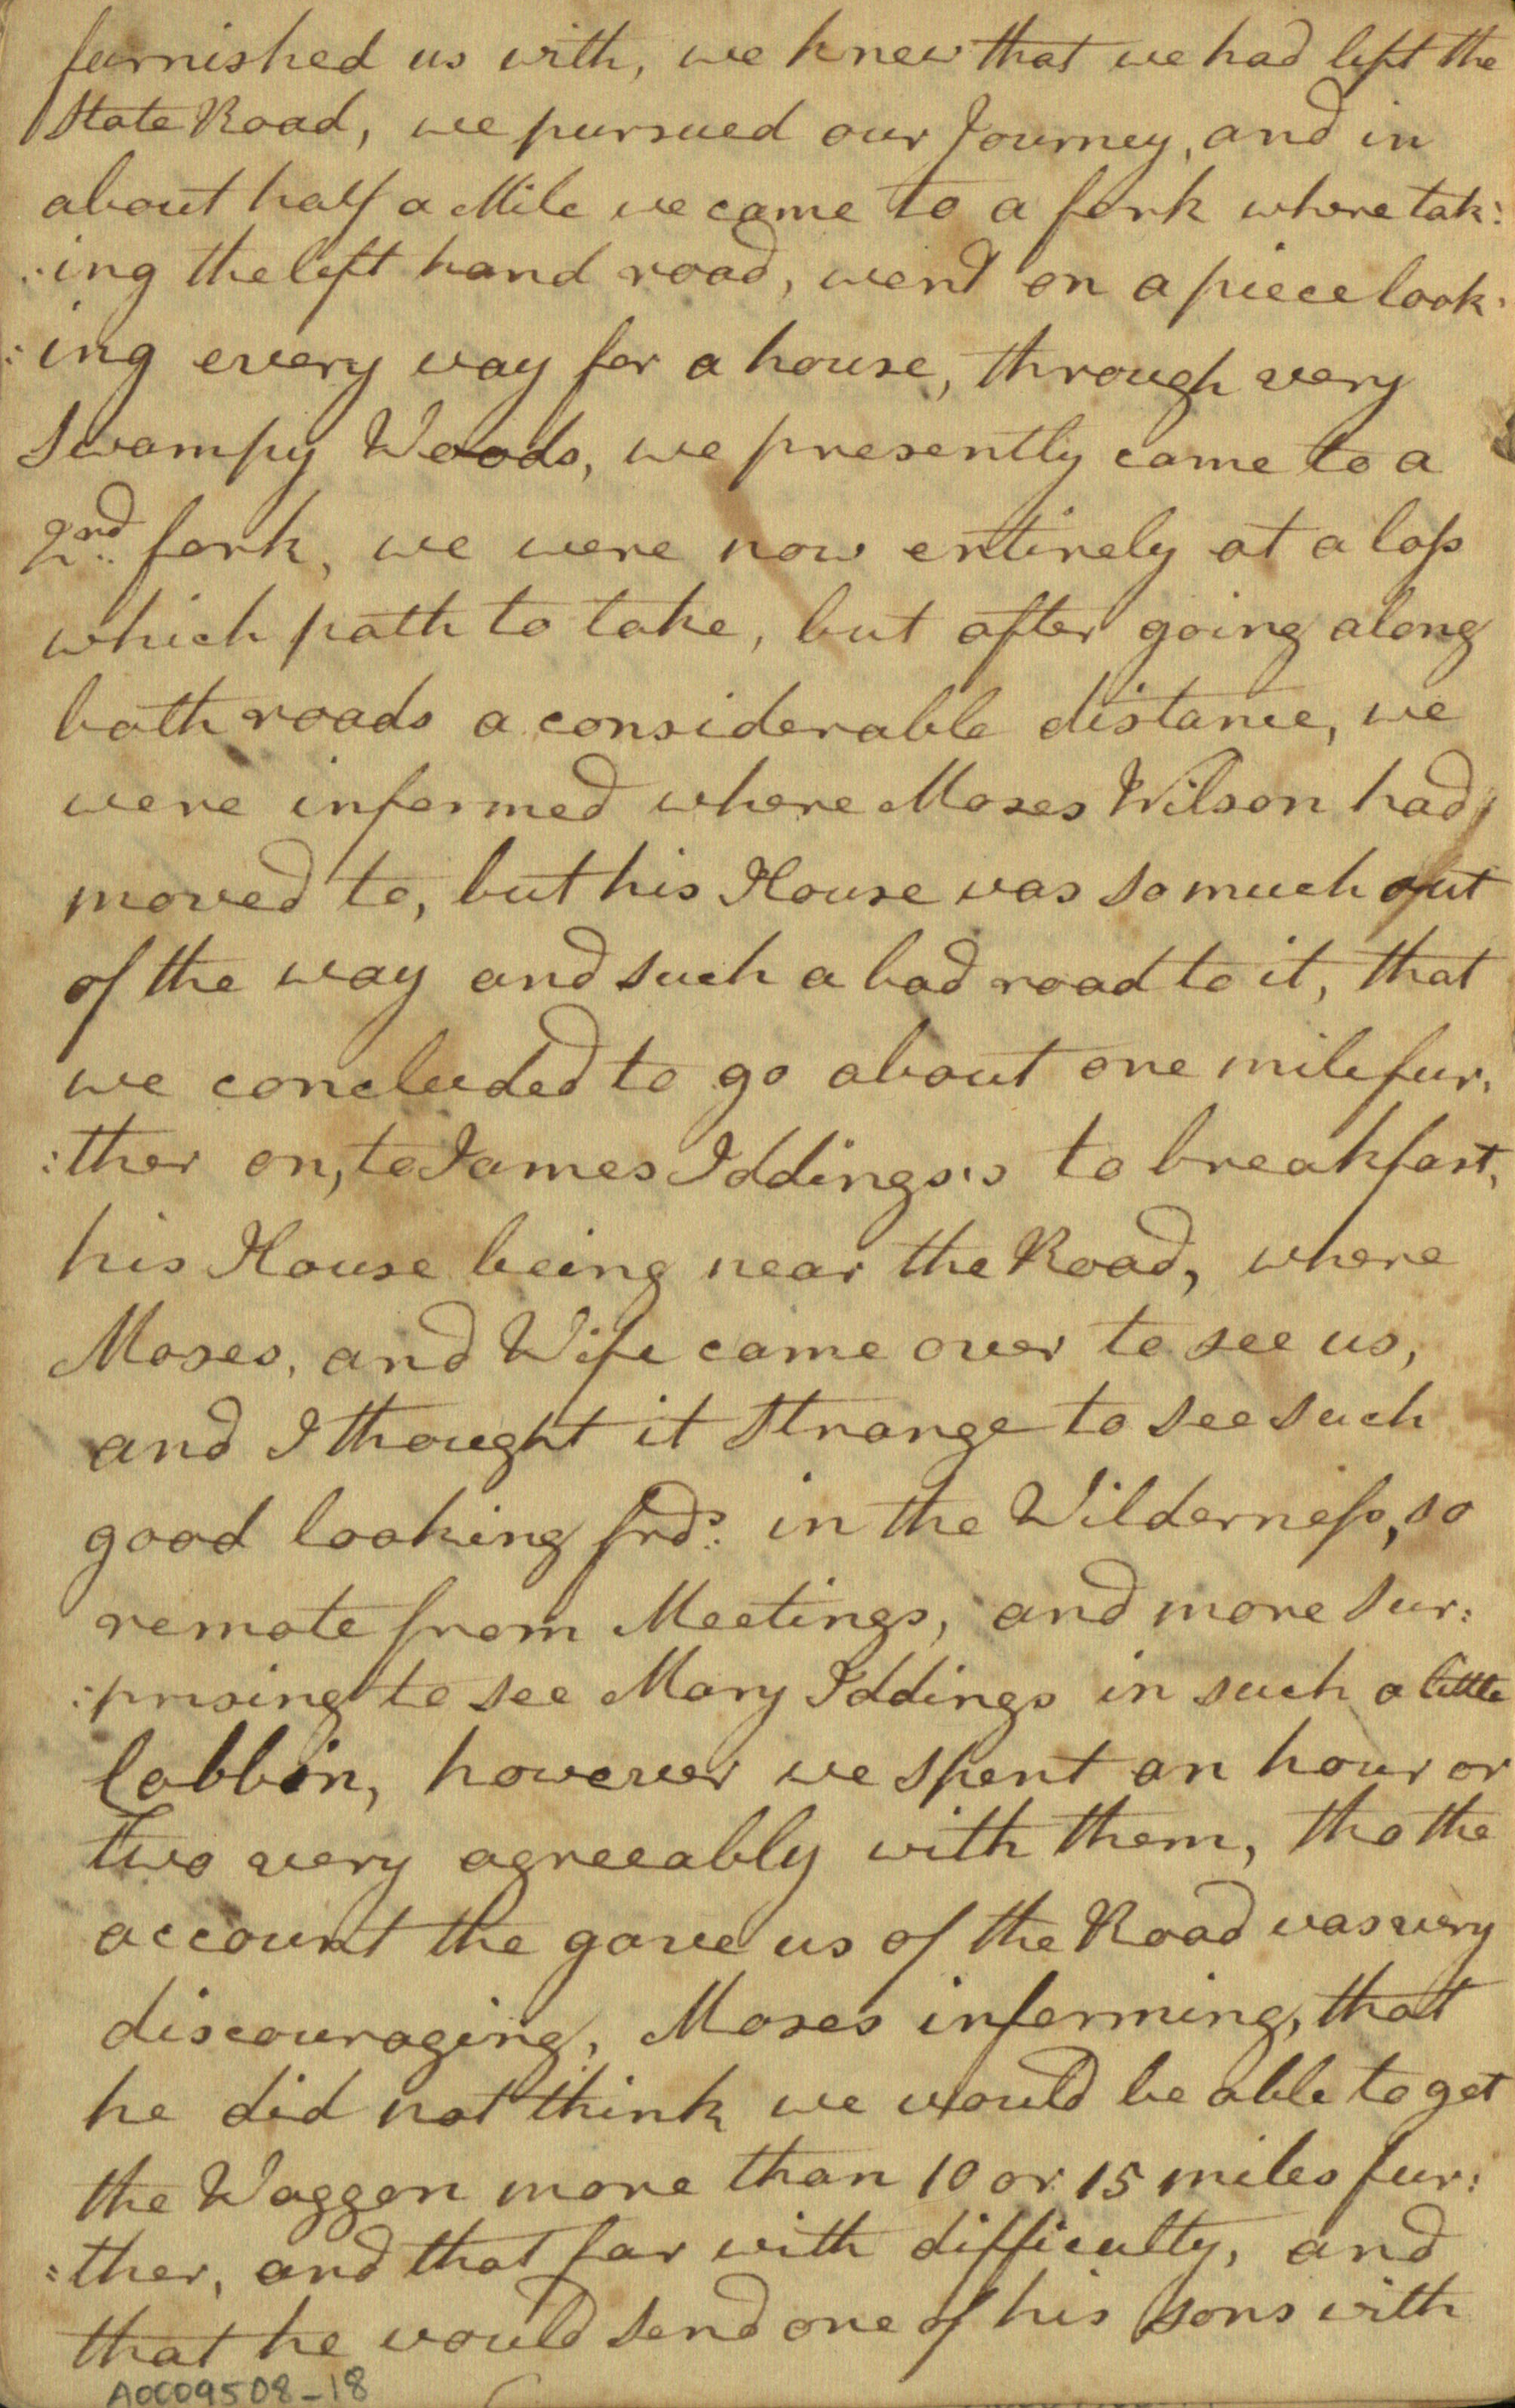 furnished us with, we knew that we had left the
State Road, we pursued our Journey, and in
about half a Mile we came to a fork where tak:
:ing the left hand road, went on a piece look:
:ing every way for a house, through very
Swampy Woods, we presently came to a
2nd fork, we were now entirely at a loss
which path to take, but after going along
both roads a considerable distance, we
were informed where Moses Wilson had
moved to, but his House was so much out
of the way and such a bad road to it, that
we concluded to go about one mile fur:
:ther on, to James Iddings's to breakfast,
his House being near the Road, where
Moses, and Wife came over to see us,
and I thought it strange to see such
good looking frds: in the Wilderness, so
remote from Meetings, and more sur:
:prising to see Mary Iddings in such a little
Cabbin, however we spent an hour or
two very agreeably with them, tho the
account the gave us of the Road was very
discouraging, Moses informing, that
he did not think we would be able to get
the Waggon more than 10 or 15 miles fur:
:ther, and that far with difficulty, and
that he would send one of his sons with
A0009508-18